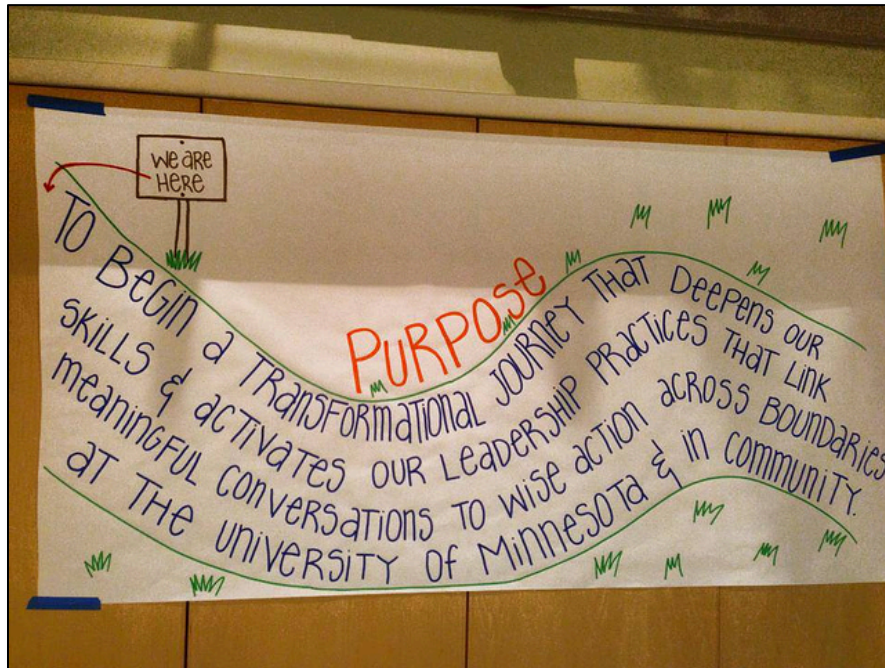 We are
Here
PURPOSE
TO BEGIN a TRANSFORMATIONAL JOURNEY THAT DEEPENS OUR
SKILLS & ACTIVATES OUR LEADERSHIP PRACTICES THAT LINK
meaningful conversations to wise action across Boundaries
at the university of Minnesota & in community.